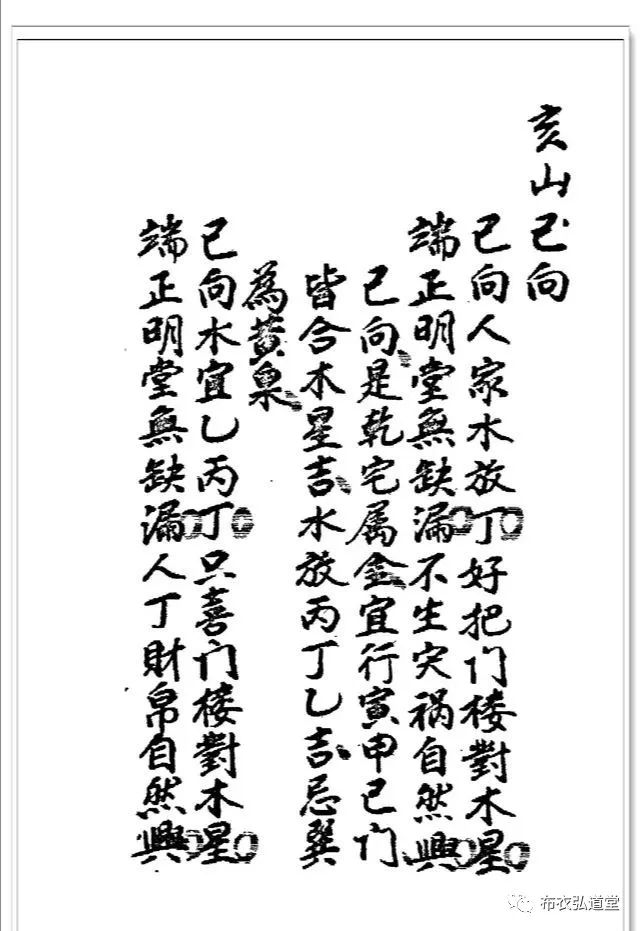 亥山已向
已向人家水放丁好把门楼對木星
端正明堂無缺漏不生灾祸自然興
已向是乾宅属金宜行寅甲已门
皆合木星吉水放丙丁乙吉忌巽
為黄泉
已向水宜乙丙丁只喜门楼對木星
端正明堂無缺漏人丁財帛自然興
布衣弘道堂